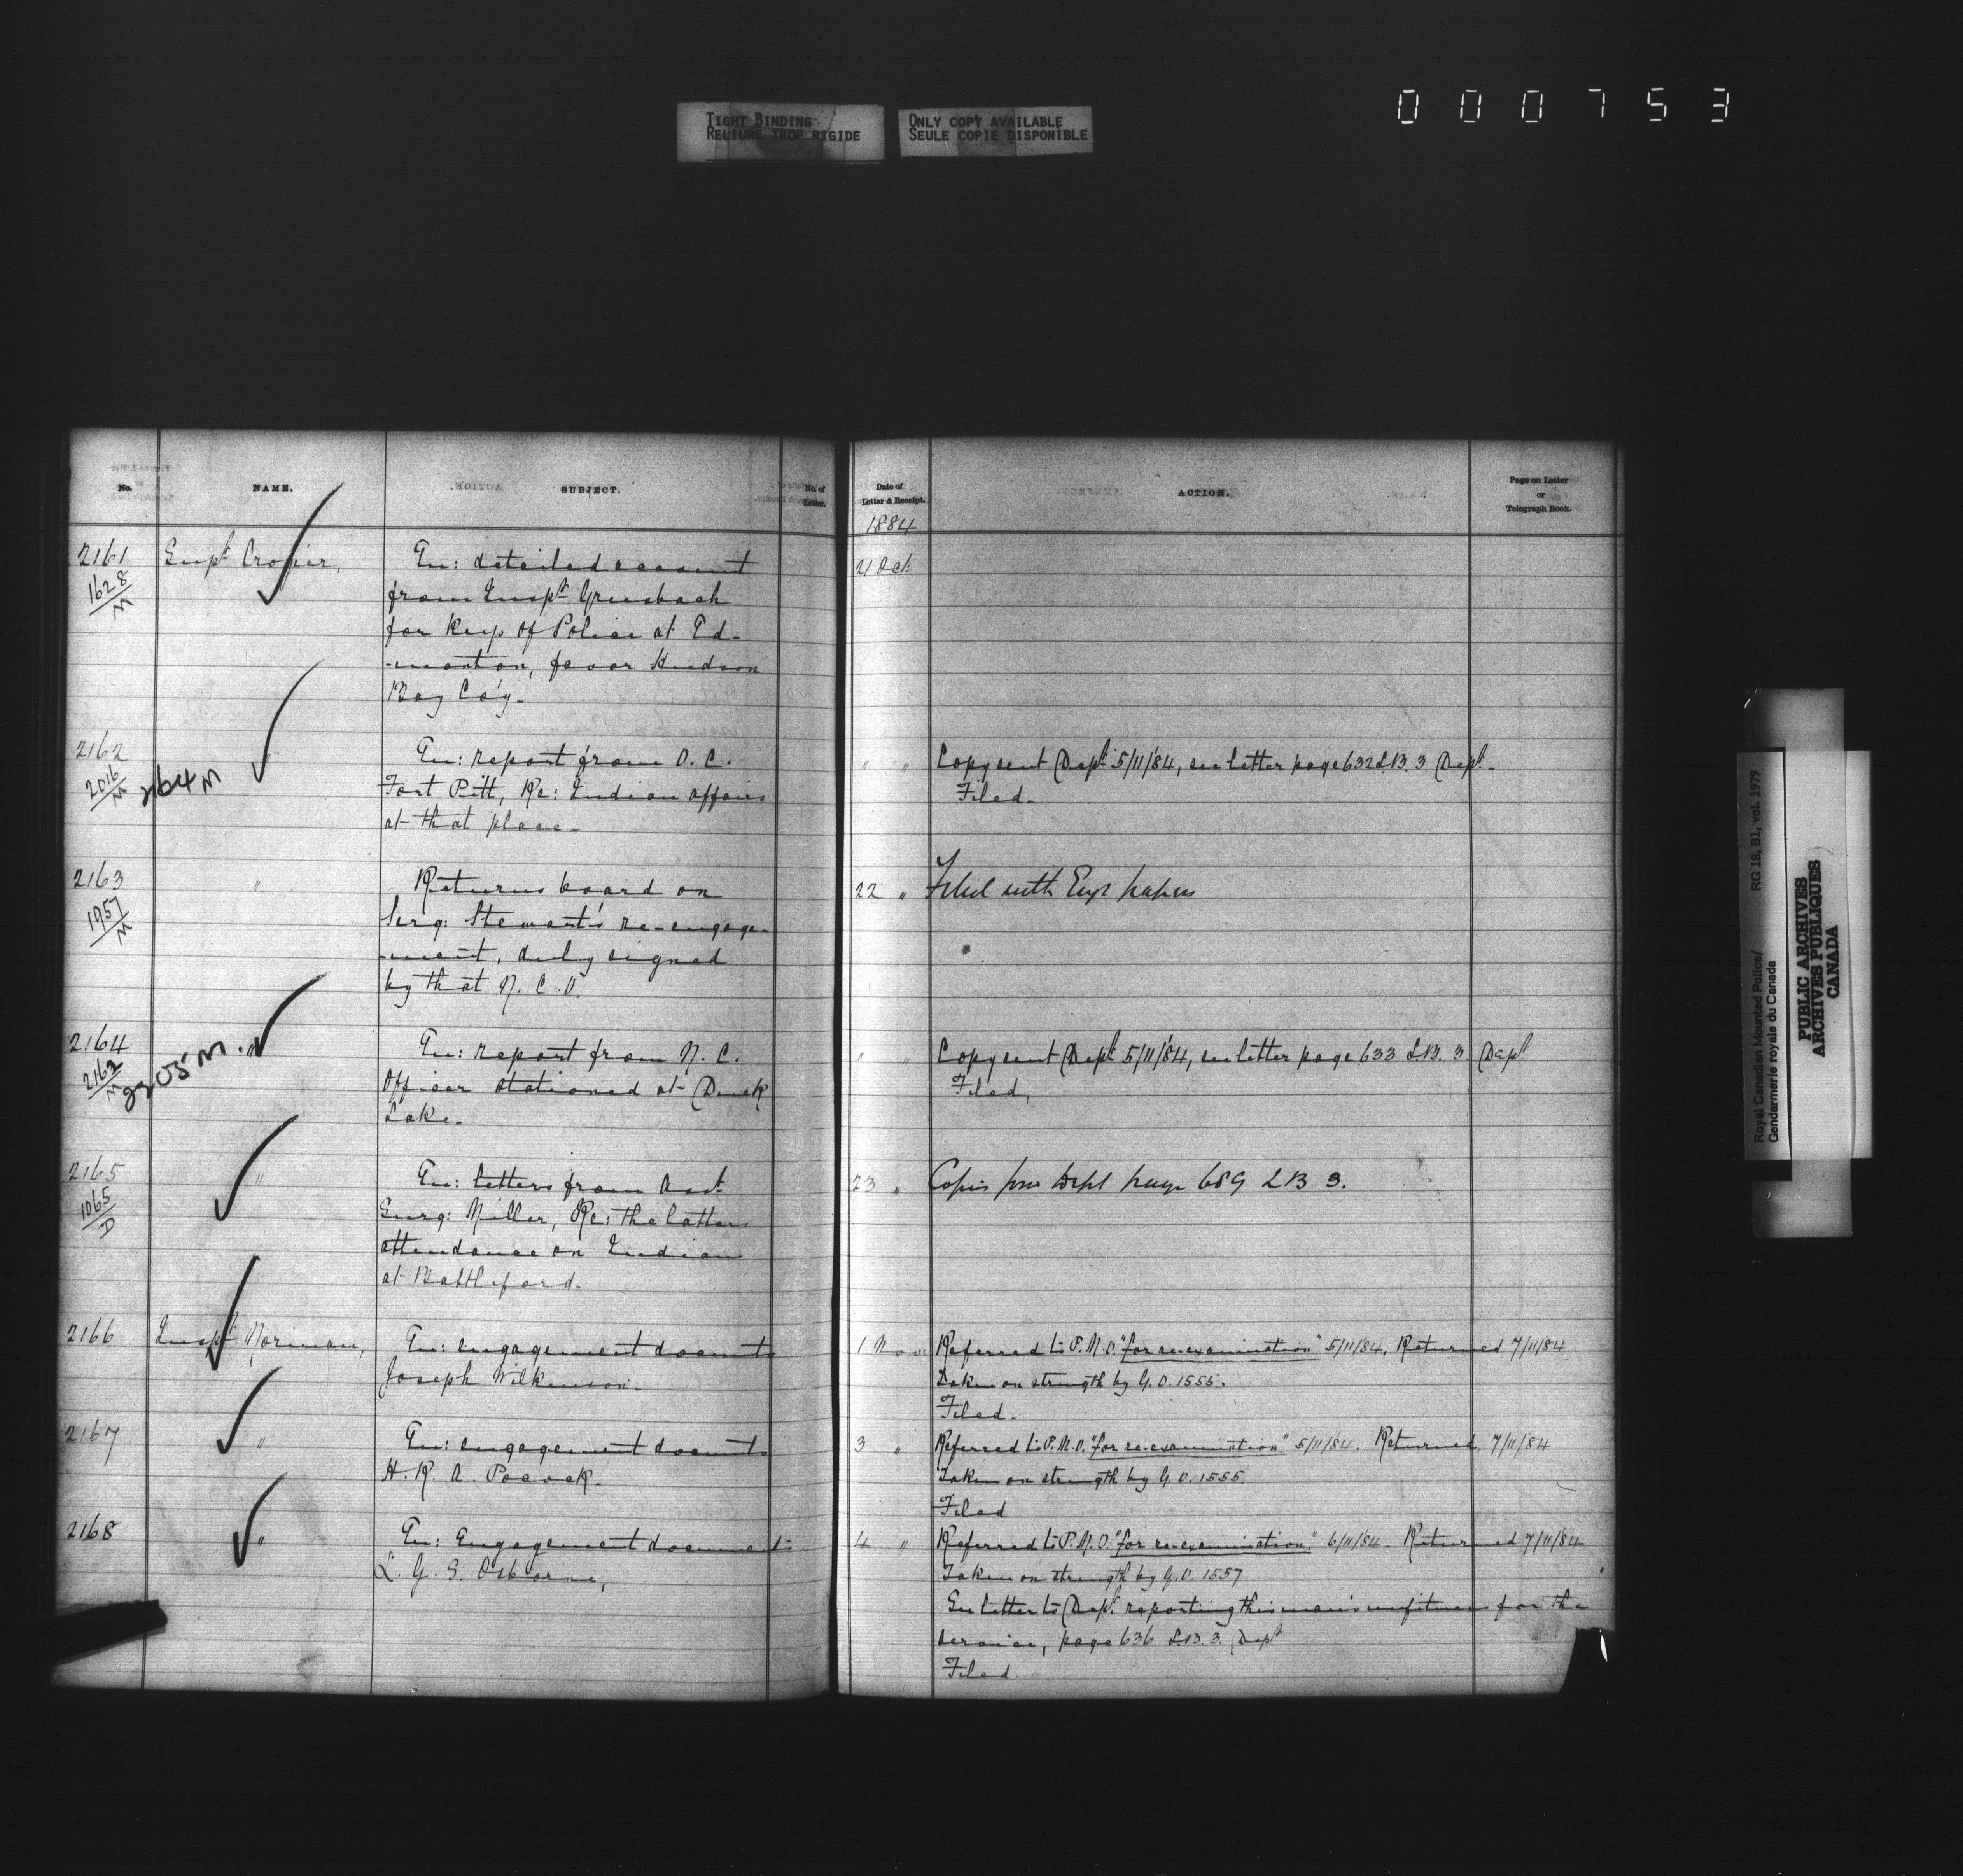 000753
TIGHT BINDING
RELIURE TROP RIGIDE
ONLY COPY AVAILABLE
SEULE COPIE DISPONIBLE
No.
NAME.
SUBJECT.
No. of
Letter.
Date of
Letter & Receipt.
ACTION.
Page on Letter
or
Telegraph Book.
1884
2161
1628
M
Supt Crozier,
En: detailed account
from Inspt Griesbach
for keep of Police at Ed-
-monton, favor Hudson
Bay Co'y.
21 Oct
2162
2016
M
2164 M
En: report from O. C.
Fort Pitt, Re: Indian affairs
at that place.
" "
Copy sent Dept 5/11/84, see letter page 632 L.B. 3 Dept.
Filed.
2163
1957
M
"
Returns board on
Serg: Stewart's re-engage-
-ment, duly signed
by that N. C. O.
22 "
Filed with Eng. papers
2164
2162
M
2205 M.
"
En: report from N. C.
Officer stationed at Duck
Lake.
" "
Copy sent Dept 5/11/84, see letter page 633 L.B. 3. Dept
Filed,
2165
1065
D
"
En: letters from Asst
Surg: Miller, Re: the latters
attendance on Indian
at Battleford.
23 "
Copies Dept page 689 LB 3.
2166
Inspt Norman,
En: engagement documts
Joseph Wilkinson.
1 Nov
Referred to P. M. O. "for re-examination" 5/11/84, Returned 7/11/84
Taken on strength by G. O. 1555.
Filed.
2167
"
En: engagement documts
H. R. A. Pocock.
3 "
Referred to P. M. O. "for re-examination" 5/11/84. Returned, 7/11/84
Taken on strength by G. O. 1555.
Filed
2168
"
En: Engagement documents
L. G. S. Osborne,
4 "
Referred to P. M. O. "for re-examination." 6/11/84. Returned 7/11/84
Taken on strength by G. O. 1557
See letter to Dept reporting this man's unfitness for the
service, page 636 L.B. 3. Dept
Filed.
Royal Canadian Mounted Police/
Gendarmerie royale du Canada
RG 18, B1, vol. 1979
PUBLIC ARCHIVES
ARCHIVES PUBLIQUES
CANADA